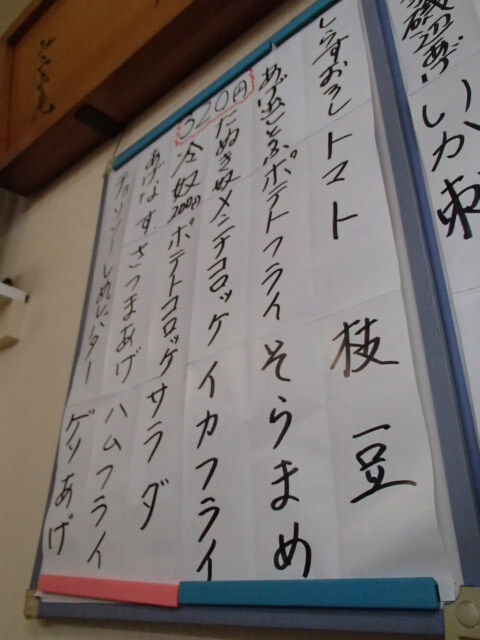 磯辺あげ いか刺
しらすおろし トマト 枝豆
あげだしとうふ ポテトフライ そらまめ
320円
たぬき奴 メンチコロッケ イカフライ
冷奴 200円 ポテトコロッケ サラダ
あげなす さつまあげ ハムフライ
チョリソー しめじバター ゲソあげ